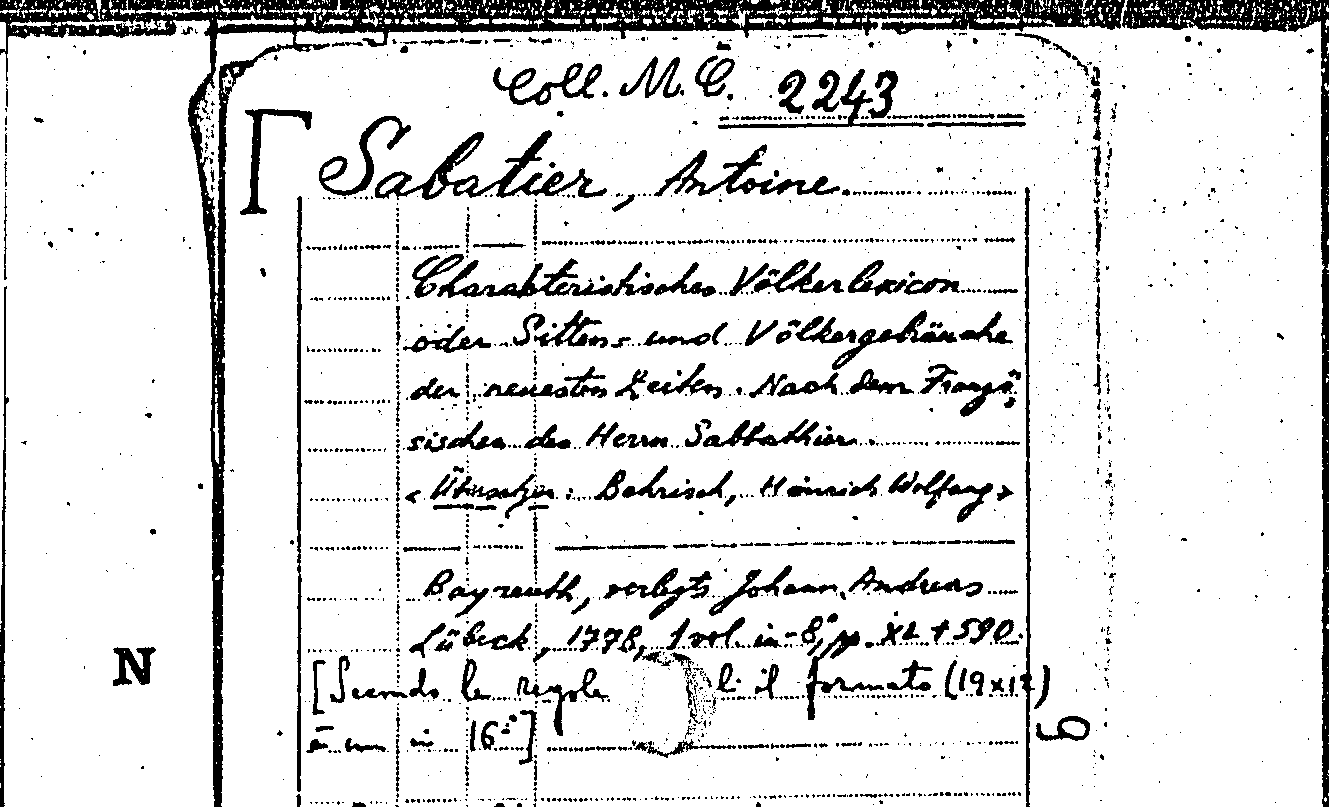 Coll. M. C. 2243
Sabatier, Antoine.
Charakteristisches Völkerlexicon
oder Sitten- und Völkergebräuche
der neuesten Zeiten. Nach dem Franzö-
sischen des Herrn Sabbathier.
<Übersetzer: Behrisch, Heinrich Wolfgang>
Bayreuth, verlegts Johann Andreas
Lübeck, 1778, 1 vol. in-8°, pp.
+ 590.
N
[Secondo le regole il formato (19x12)
è un in 16°]
6